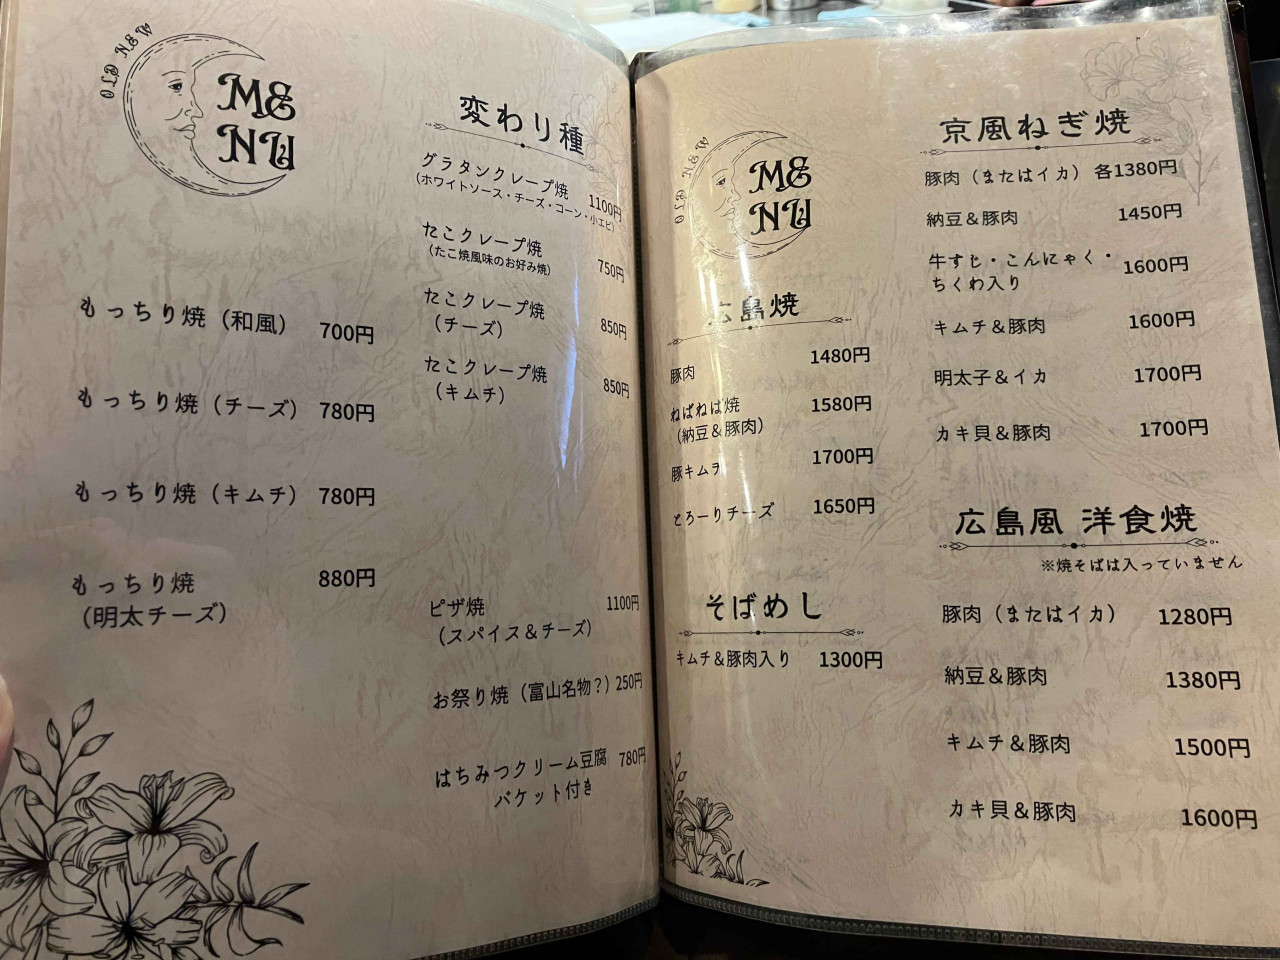 OLD MEN
ME
NU
もっちり焼（和風） 700円
もっちり焼（チーズ） 780円
もっちり焼（キムチ） 780円
もっちり焼 880円
（明太チーズ）
変わり種
グラタンクレープ焼 1100円
（ホワイトソース・チーズ・コーン・小エビ）
たこクレープ焼
（たこ焼風味のお好み焼） 750円
たこクレープ焼
（チーズ） 850円
たこクレープ焼
（キムチ） 850円
ピザ焼 1100円
（スパイス＆チーズ）
お祭り焼（富山名物？） 250円
はちみつクリーム豆腐 780円
バケット付き
OLD MEN
ME
NU
広島焼
豚肉 1480円
ねばねば焼 1580円
（納豆＆豚肉）
豚キムチ 1700円
とろーりチーズ 1650円
そばめし
キムチ＆豚肉入り 1300円
京風ねぎ焼
豚肉（またはイカ） 各1380円
納豆＆豚肉 1450円
牛すじ・こんにゃく・
ちくわ入り 1600円
キムチ＆豚肉 1600円
明太子＆イカ 1700円
カキ貝＆豚肉 1700円
広島風 洋食焼
※焼そばは入っていません
豚肉（またはイカ） 1280円
納豆＆豚肉 1380円
キムチ＆豚肉 1500円
カキ貝＆豚肉 1600円